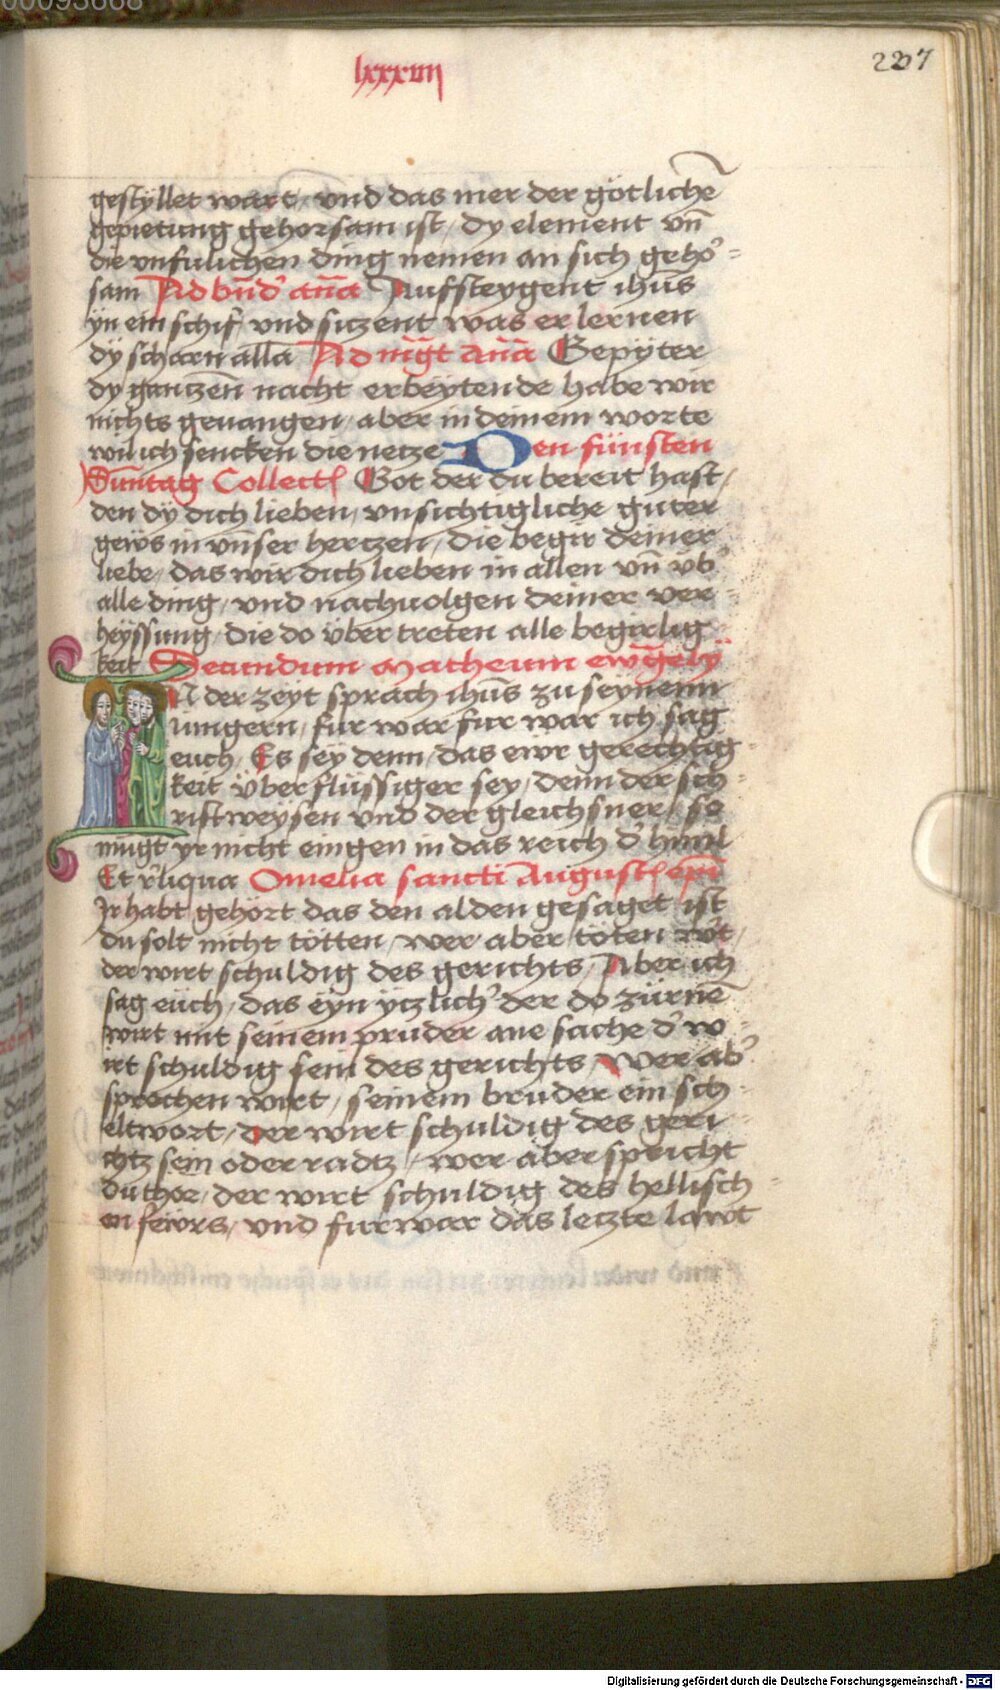 00093668
lxxxviij
237
gestyllet wart / vnd das mer der götlichē
gepietung gehorsam ist / dy element vn̄
die vnfulichen ding nemen an sich geho᷑ =
sam Ad bn̄d᷑ an̄a Aufsteygent ihūs
yn ein schif / vnd siczent was er lernen
dÿ scharn alla Ad mg̅t an̄a Gepÿter
dy gantzen nacht erbeÿtende habe wir
nichts geuangen / aber in deinem worte
wil ich sencken die netze Den fünften
Sun̄tag Collect Got der du bereit hast /
den dÿ dich lieben / vnsichtigliche guter
gews in vnser hertzen / die begir deiner
liebe / das wir dich lieben in allen vn̄ vb᷑
alle ding / vnd nachuolgen deiner ver =
heÿssung / die do über treten alle begirlig =
keit Secundum Matheum ewāgely
IN der zeyt sprach ihūs zu seynenn
iungern / fur war fur war ich sag
euch / Es sey denn / das ewr gerechtig =
keit überflüssiger sey / denn der sch =
riftweysen vnd der gleichsner / so
mügt yr nicht eingen in das reich d᷑ himl
Et rliqua Omelia sancti Augusti ep̄i
Ir habt gehört das den alden gesaget ist
du solt nicht tötten / wer aber töten wirt /
der wirt schuldig des gerichts / Aber ich
sag eüch / das eyn yczlich᷑ der do zürnē
wirt mit seinem pruder ane sache d᷑ w =
irt schuldig sein des gerichts / Wer ab᷑
sprechen wirt / seinem bruder ein sch =
eltwort / der wirt schuldig des geri =
chtz sein oder radtz / wer aber spricht
du thor / der wirt schuldig des hellisch =
en fewrs / vnd furwar das letzte lawt
Digitalisierung gefördert durch die Deutsche Forschungsgemeinschaft - DFG